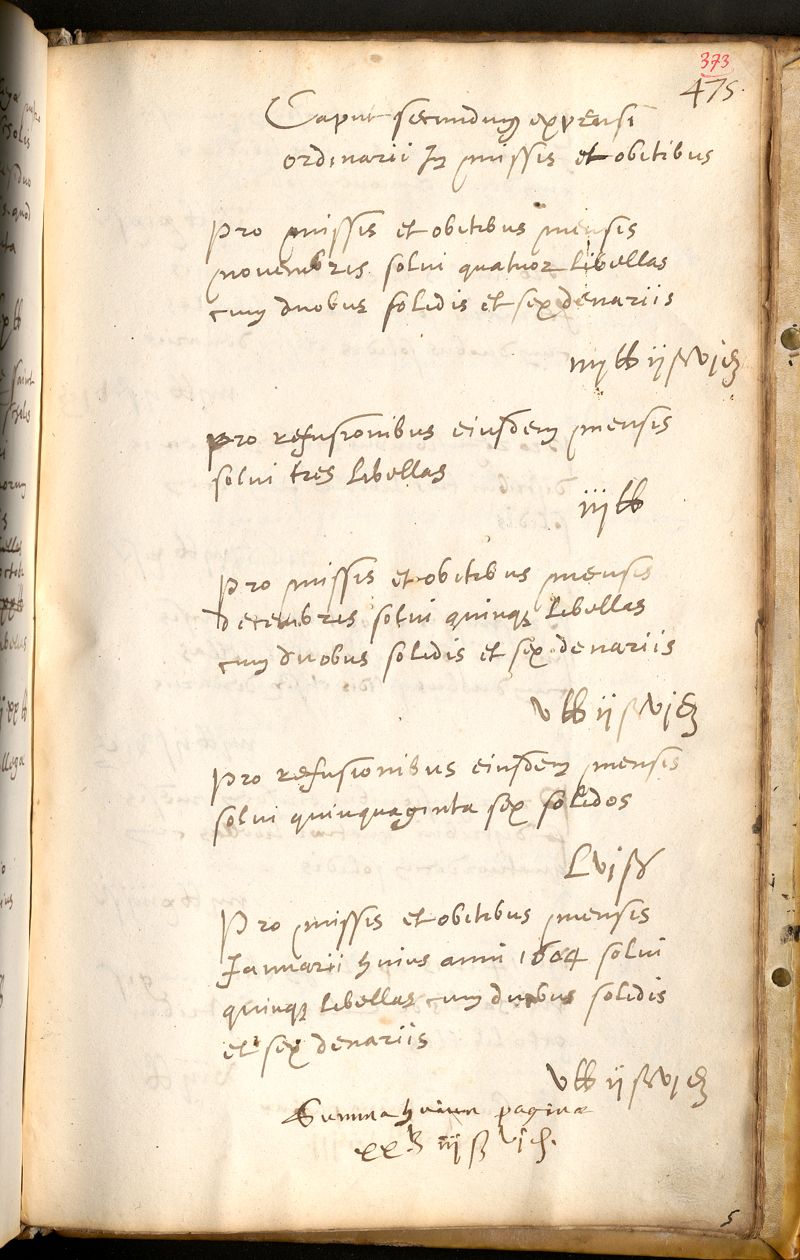 373
475.
Caput secundum expensi
ordinarii In missis et obitibus
Pro missis et obitibus mensis
novembris solui quatuor libellas
cum duobus solidis et sex denariis
iiij ll ij ß vj d
pro refusionibus eiusdem mensis
solui tres libellas
iij ll
Pro missis et obitibus mensis
decembris solui quinq; libellas
cum duobus solidis et sex denariis
v ll ij ß vj d
Pro refusionibus eiusdem mensis
solui quinquaginta sex solidos
Lvj ß
Pro missis et obitibus mensis
Januarii huius anni 1604 solui
quinq; libellas cum duobus solidis
et sex denariis
v ll ij ß vj d
Summa huius paginæ
xx ll iij ß vj d.